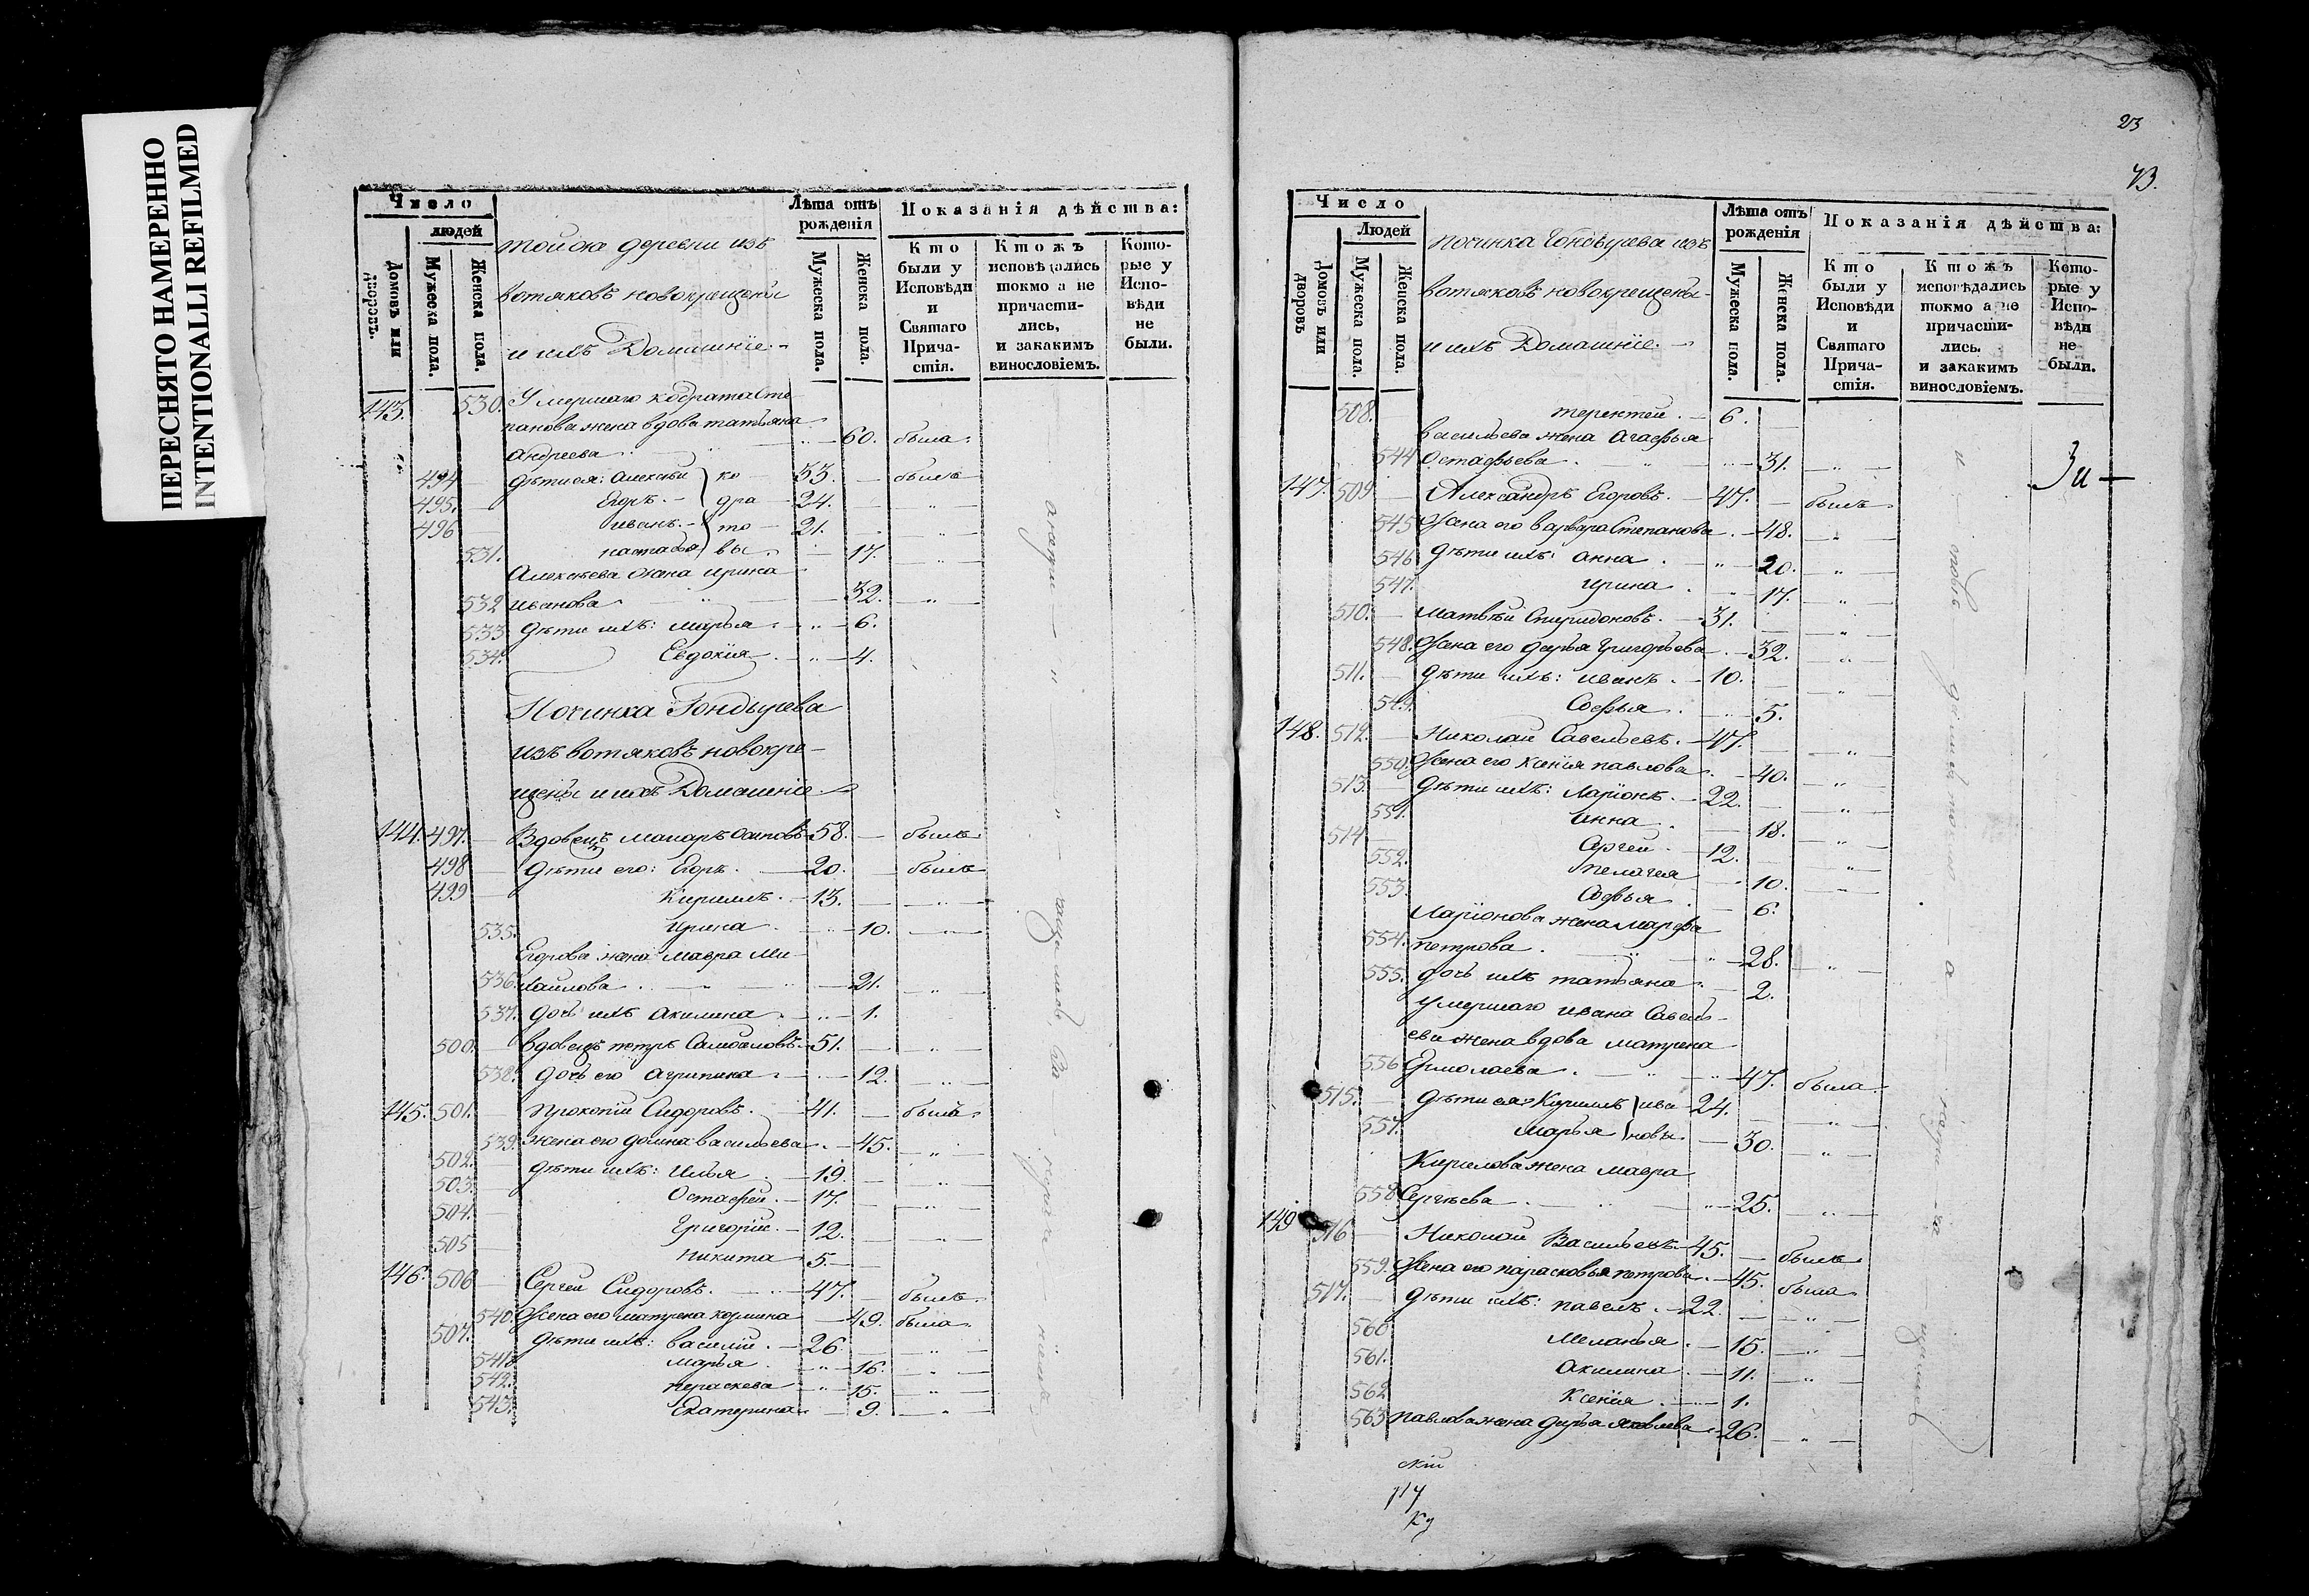 ПЕРЕСНЯТО НАМЕРЕННО
INTENTIONALLI REFILMED
Число
людей
Домовъ или дворовъ.
Мужеска пола.
Женска пола.
той же деревни изъ
вотяковъ новокрещены
и ихъ Домашніе.
Лѣта отъ рожденія
Мужеска пола.
Женска пола.
Показанія дѣйства:
Кто были у Исповѣди и Святаго Прича-стія.
Ктожъ исповѣдались токмо а не причасти-лись, и закакимъ винословіемъ.
Кото-рые у Испо-вѣди не были.
143. 530. Умершаго кодрата Сте-
панова жена вдова татьяна
Андреева 60. была
494 дѣти ея: Алексѣй ко 33. былъ
495. Егоръ. дра 24. „
496 иванъ. то 21. „
531. настасья вы 17. „
Алексѣева жена ирина
532 иванова 32. „
533 дѣти ихъ: марья 6.
534. Евдокія 4.
Починка Гондырева
изъ вотяковъ новокре-
щены и ихъ Домашніе
144. 497. Вдовецъ макаръ осиповъ 58. былъ
498 дѣти его: Егоръ. 20. былъ
499 Кирилъ. 13. „
535. ирина 10. „
Егорова жена мавра Ми-
536. хайлова 21. „
537. дочь ихъ акилина 1.
500. вдовецъ петръ Самойловъ 51. „
538. дочь его агрипина 12. „
145. 501. прокопій Сидоровъ. 41. былъ
539. жена его домна васильева 45. „
502. дѣти ихъ: илья 19. „
503. Остафей. 17. „
504. Григорій. 12. „
505 никита 5.
146. 506 Сергей Сидоровъ. 47. былъ
540. Жена его матрена козмина 49. была
507. дѣти ихъ: василій. 26. „
541. марья 16. „
542. параскева 15. „
543. Екатерина 9. „
23
43.
Число
Людей
Домовъ или дворовъ
Мужеска пола.
Женска пола.
починка Гондырева изъ
вотяковъ новокрещены
и ихъ Домашніе.
Лѣта отъ рожденія
Мужеска пола.
Женска пола.
Показанія дѣйства:
Кто были у Исповѣди и Святаго Прича-стія.
Ктожъ исповѣдались токмо а не причасти-лись. и закакимъ винословіемъ.
Кото-рые у Испо-вѣди не были.
508. терентей. 6.
васильева жена Агафья
544 Остафьева 31. „
147. 509 Александръ Егоровъ. 47. былъ
545 Жена его варвара Степанова 48. „
546 дѣти ихъ: анна 20. „
547. ирина 17. „
510. матвѣй Спиридоновъ. 31. „
548. Жена его дарья григорьева 32. „
511. дѣти ихъ: иванъ. 10. „
549. Софья 5.
148. 512. Николай Савельевъ. 47. „
550. Жена его ксенія павлова 40. „
513. дѣти ихъ: Ларіонъ. 22. „
551. Анна 18. „
514 Сергей 12. „
552. пелагея 10. „
553. Софья 6.
Ларіонова жена марфа
554. петрова 28. „
555. дочь ихъ татьяна 2.
умершаго ивана Савель-
ева жена вдова матрена
556 Ермолаева 47. была
515. дѣти ея: Кирилъ ива 24. „
557. марья новы 30. „
Кирилова жена мавра
558 Сергѣева 25. „
149 516 Николай Васильевъ 45. былъ
559. Жена его парасковья петрова 45. была
517. дѣти ихъ: павелъ. 22. „
560 меланья 15. „
561. акилина 11. „
562 Ксенія 1.
563 павлова жена дарья яковлева 26. „